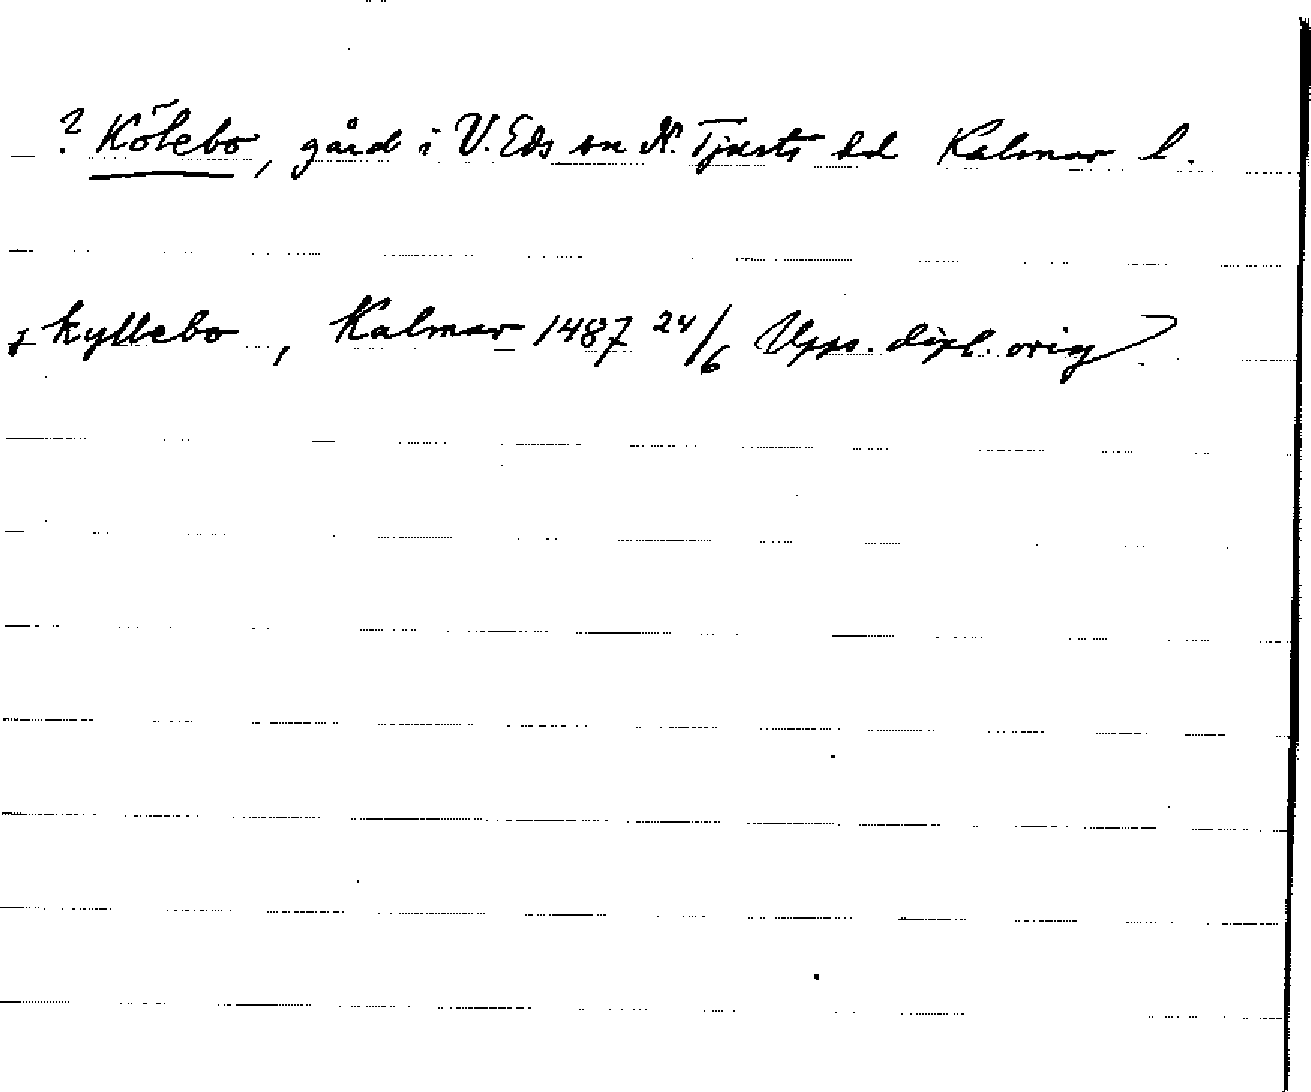 ? Kölebo, gård i V. Eds sn N. Tjusts hd Kalmar l.
j kyllebo, Kalmar 1487 24/6 Upps. dipl. orig